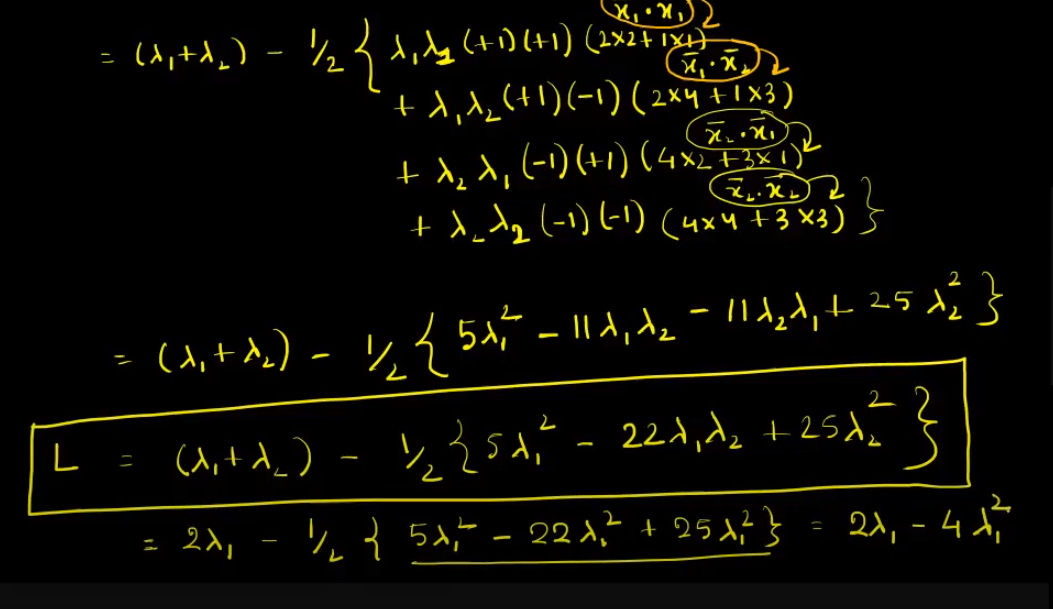 x₁·x₁
= (λ₁+λ₂) - 1/2 { λ₁λ₁ (+1)(+1) (2×2+1×1)
x̄₁·x̄₂
+ λ₁λ₂ (+1)(-1) (2×4+1×3)
x̄₂·x̄₁
+ λ₂λ₁ (-1)(+1) (4×2+3×1)
x̄₂·x̄₂
+ λ₂λ₂ (-1)(-1) (4×4+3×3) }
= (λ₁+λ₂) - 1/2 { 5λ₁² - 11λ₁λ₂ - 11λ₂λ₁ + 25λ₂² }
L = (λ₁+λ₂) - 1/2 { 5λ₁² - 22λ₁λ₂ + 25λ₂² }
= 2λ₁ - 1/2 { 5λ₁² - 22λ₁² + 25λ₁² } = 2λ₁ - 4λ₁²